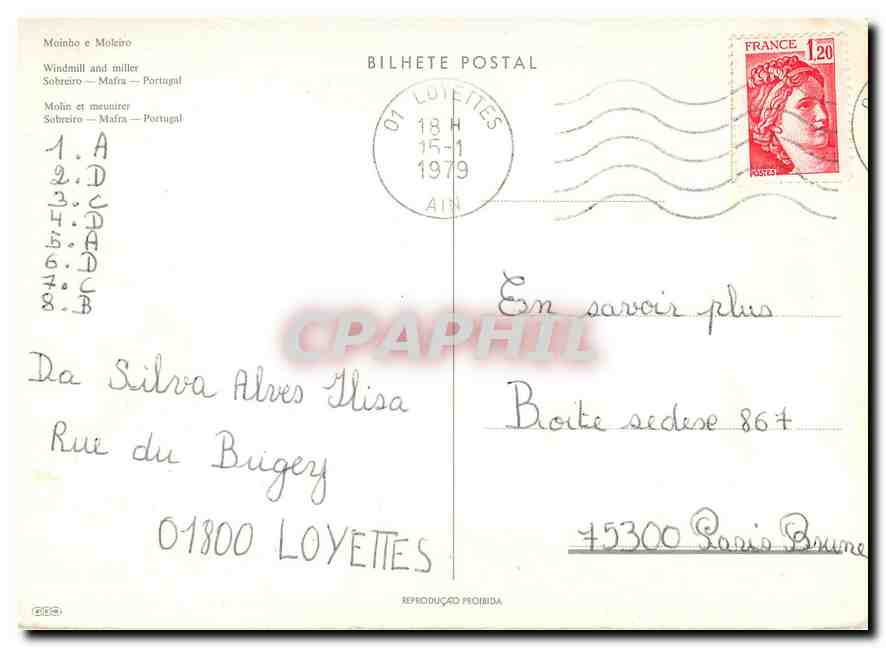 Moinho e Moleiro
Windmill and miller
Sobreiro — Mafra — Portugal
Molin et meunirer
Sobreiro — Mafra — Portugal
BILHETE POSTAL
01 LOYETTES
18 H
15-1
1979
AIN
FRANCE 1,20
POSTES
1. A
2. D
3. C
4. D
5. A
6. D
7. C
8. B
CPAPHIL
Da Silva Alves Ilisa
Rue du Bugey
01800 LOYETTES
En savoir plus
Boite sedese 867
75300 Paris Brune
REPRODUÇÃO PROIBIDA